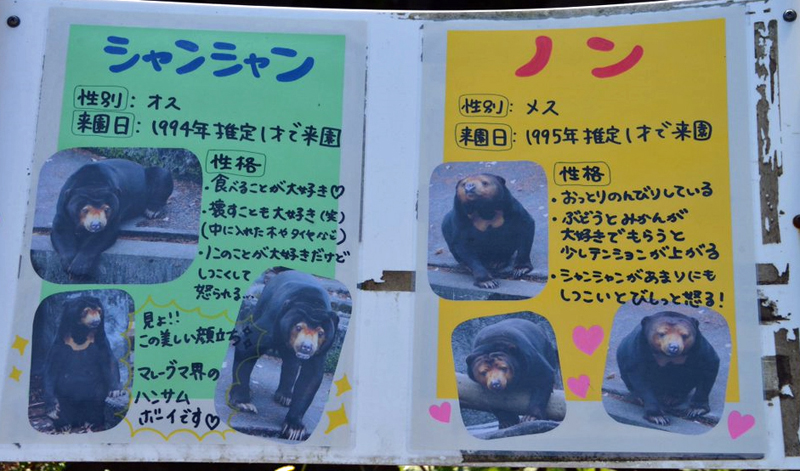 シャンシャン
性別：オス
来園日：1994年推定1才で来園
性格
・食べることが大好き♡
・壊すことも大好き（笑）
（中に入れた木やタイヤなど）
・ノンのことが大好きだけど
しつこくして
怒られる…
見よ!!
この美しい顔立ち
マレーグマ界の
ハンサム
ボーイです♡
ノン
性別：メス
来園日：1995年推定1才で来園
性格
・おっとりのんびりしている
・ぶどうとみかんが
大好きでもらうと
少しテンションが上がる
・シャンシャンがあまりにも
しつこいとびしっと怒る!